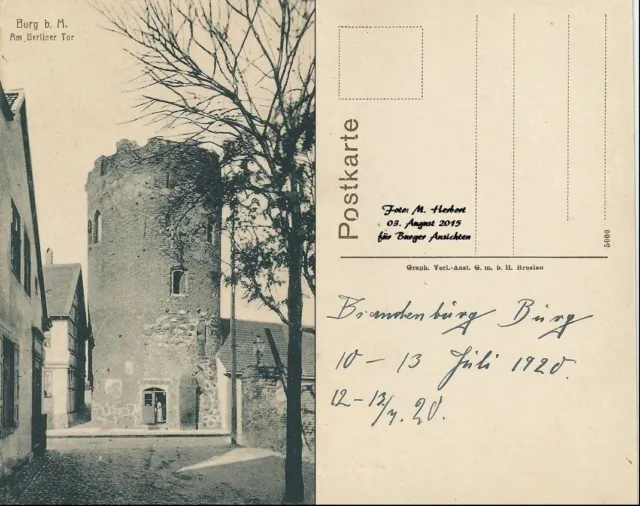 Burg b. M.
Am Berliner Tor
Postkarte
Foto: M. Herbort
03. August 2015
für Burger Ansichten
5000
Graph. Verl.-Anst. G. m. b. H. Breslau
Brandenburg Burg
10 – 13 Juli 1920.
12-13/7. 20.